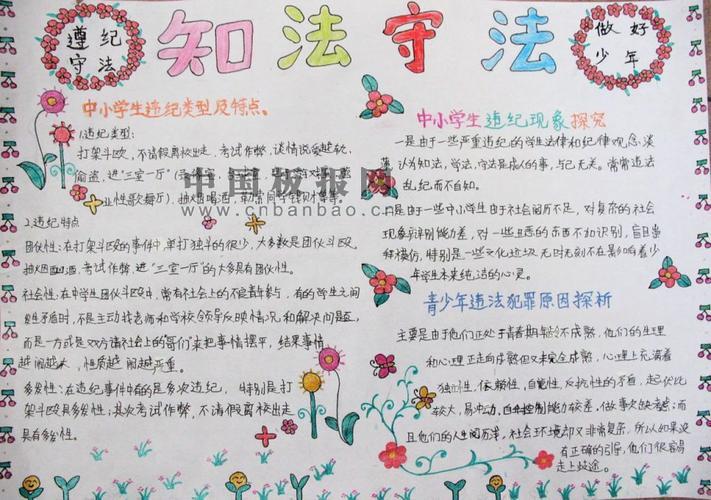 遵纪
守法
知法守法
做好
少年
中小学生违纪类型及特点。
1.违纪类型:
打架斗殴,不请假离校出走,考试作弊,谈情说爱越轨,
偷盗,进"三室一厅"
业性歌舞厅),抽烟喝酒,
2.违纪特点
团伙性:在打架斗殴的事件中,单打独斗的很少,大多数是团伙斗殴。
抽烟酗酒,考试作弊,进"三室一厅"的大多具有团伙性。
社会性:在中学生团伙斗殴中,常有社会上的不良青年参与,有的学生之间
发生矛盾时,不是主动找老师和学校领导反映情况和解决问题,
而是一方或是双方请社会上的"哥们"来把事情摆平,结果事情
越闹越大,性质越闹越严重。
多发性:在违纪事件中有的是多次违纪,特别是打
架斗殴具多发性;其次考试作弊,不请假离校出走
具有多发性。
中小学生违纪现象探究
一是由于一些严重违纪的学生法律和纪律观念淡
薄,认为知法,学法,守法是成人的事,与己无关。常常违法
乱纪而不自知。
二是由于一些中小学生由于社会阅历不足,对复杂的社会
现象辩别能力差,对一些丑恶的东西不知识别,盲目崇
拜模仿,特别是一些文化垃圾无时无刻不在影响着少
年学生本来纯洁的心灵。
青少年违法犯罪原因探析
主要是由于他们正处于青春期年龄不成熟,他们的生理
和心理正走向成熟但又未完全成熟,心理上充满着
独立性,依赖性,自觉性,反抗性的矛盾,起伏比
较大,易冲动,自我控制能力较差。做事欠缺考虑;而
且他们的人生阅历浅,社会环境却又非常复杂,所以如果没
有正确的引导,他们很容易
走上歧途。
中国板报网
www.cnbanbao.cn